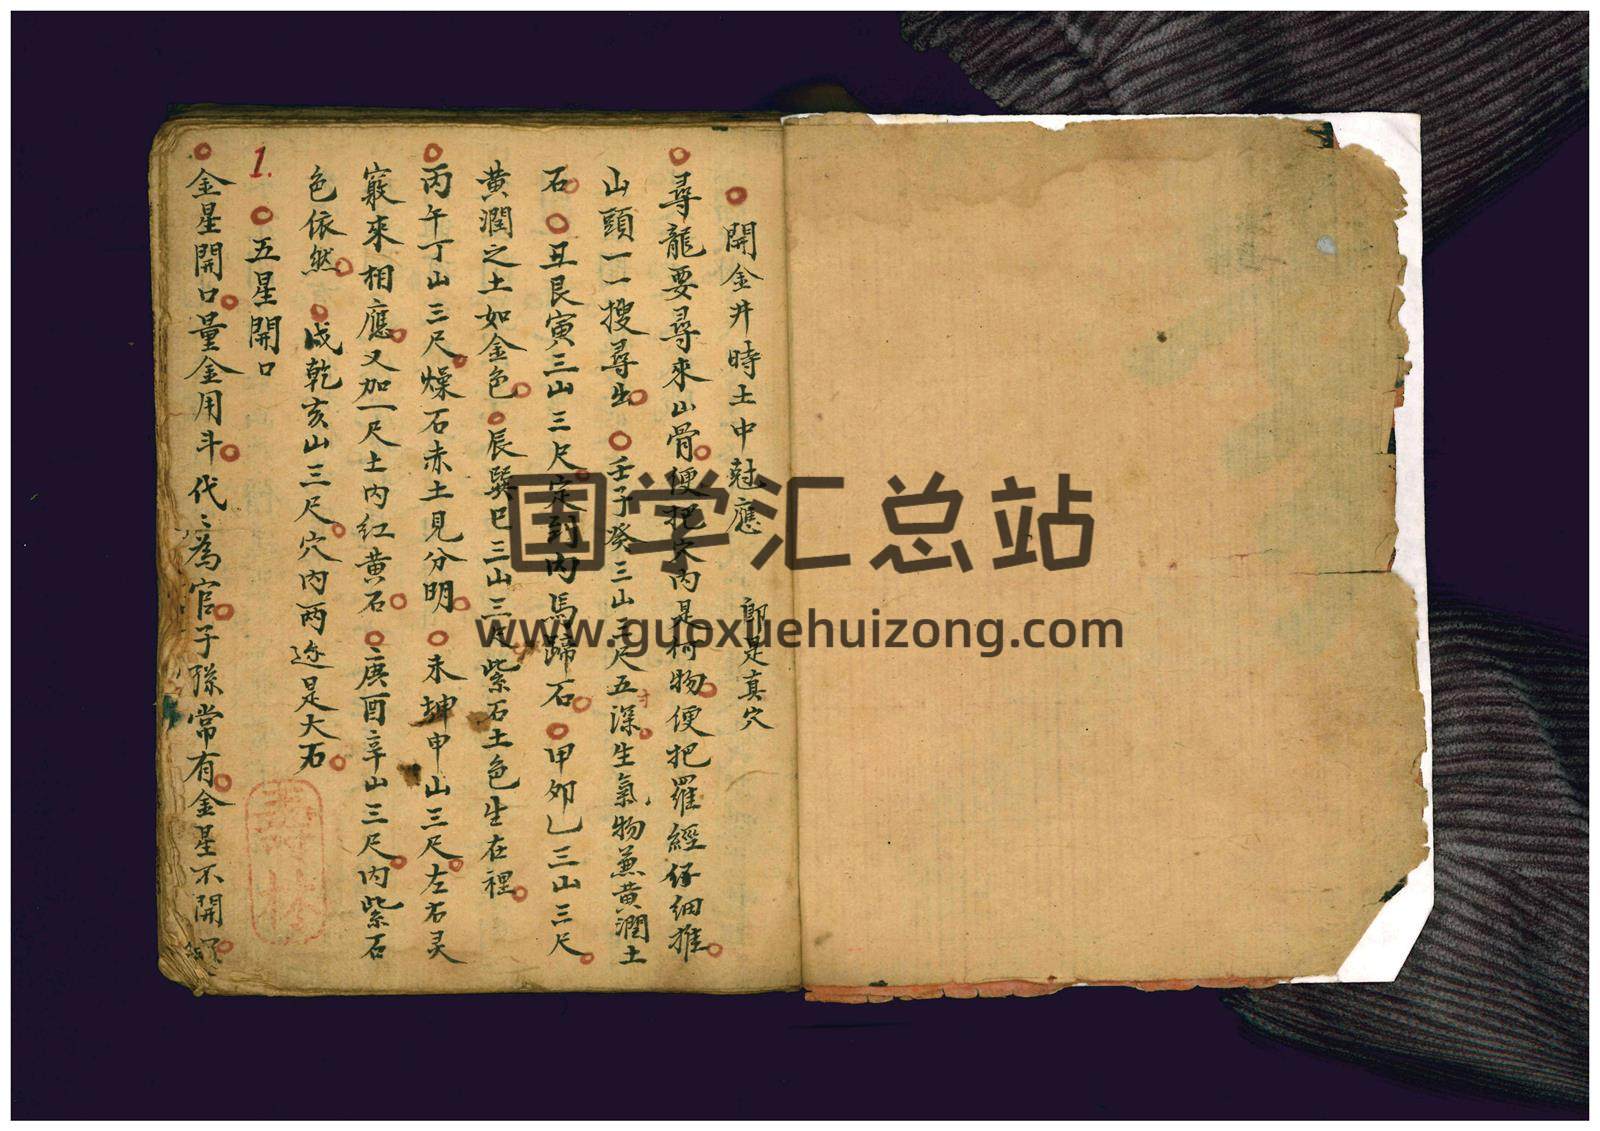 開金井時土中尅應 郎是真穴
尋龍要尋來山骨便把穴內是何物便把羅經仔細推
山頭一一搜尋出壬子癸三山三尺五寸深生氣物兼黃潤土
石丑艮寅三山三尺定到內馬蹄石甲卯乙三山三尺
黃潤之土如金色辰巽巳三山三尺紫石土色生在裡
丙午丁山三尺燥石赤土見分明未坤申山三尺左右灵
竅來相應又加一尺土內紅黃石庚酉辛山三尺內紫石
色依然戌乾亥山三尺穴內两边是大石
1.
五星開口
金星開口量金用斗代〻為官子孫常有金星不開
国学汇总站
www.guoxuehuizong.com